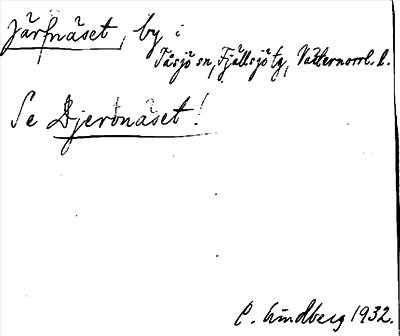 Järfnäset, by i
Tåsjö sn, Fjällsjö tg, Västernorrl. l.
Se Djerfnäset!
C. Lindberg 1932.